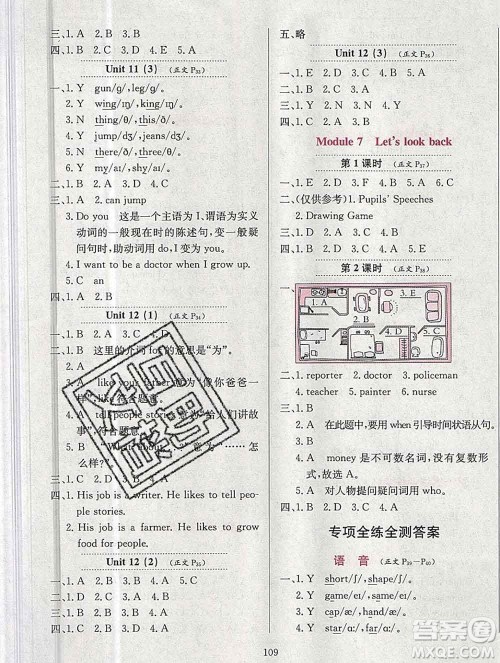 三、1. A 2. B 3. B 4. B 5. B
四、1. B 2. D 3. C 4. E 5. A
Unit 11 (3) (正文 P33)
一、1. Y gun/g/, leg/g/.
2. Y wing/ɪŋ/, king/ɪŋ/.
3. N thin/θ/, this/ð/.
4. Y jump/dʒ/, jeans/dʒ/.
5. N three/θ/, mother/ð/.
6. Y my/aɪ/, shy/aɪ/.
二、1. A 2. B 3. B 4. A
三、1. A 2. can jump
3. Do you 这是一个主语为 I,谓语为实义
动词的一般现在时的陈述句,变一般疑
问句时,助动词用 do,I 变为 you。
4. I want to be a doctor when I grow up.
5. C an
四、1. B 2. D 3. E 4. A 5. C
Unit 12 (1) (正文 P34)
一、1. C 2. A 3. B 4. C 5. A
二、1. B 这里的介词 for 的意思是“为”。
2. C 3. B 4. A 5. A
三、1. A like your father 意为“像你爸爸
一样”,like 符合题意。
2. A tell people stories 意为“给人们讲故
事”,符合题意。
3. B “What about…?”意为“……怎
么样?”。
四、1. His job is a writer. He likes to tell peo-
ple stories.
2. His job is a farmer. He likes to grow
food for people.
Unit 12 (2) (正文 P35)
一、1. C 2. B 3. D 4. A
二、1. B 2. A 3. B 4. A 5. A
三、1. B 2. A 3. A 4. B 5. A
四、1. C 2. D 3. E 4. A 5. B
五、略
Unit 12 (3) (正文 P36)
一、1. E 2. D 3. C 4. A 5. B
二、1. A 2. B 3. A 4. A
三、1. B 2. D 3. C 4. A
Module 7 Let's look back
第 1 课时 (正文 P37)
一、1. E 2. D 3. B 4. A 5. C
二、(仅供参考) 1. Pupils' Speeches
2. Drawing Game
四、1. B 2. D 3. A 4. C 5. E
第 2 课时 (正文 P38)
一、
1. A
3. E
2. B
4. D
5. C
二、1. reporter 2. doctor 3. policeman
4. teacher 5. painter 6. nurse
三、1. B
2. A 在此题中,要用 when 引导时间状语从句。
3. B
4. A money 是不可数名词,没有复数形
式,故选 A。
5. B 对人物提问疑问词用 who。
四、1. C 2. E 3. A 4. D 5. B
专项全练全测答案
语 音 (正文 P39~P40)
一、1. Y short/ʃ/, shape/ʃ/.
2. Y game/eɪ/, same/eɪ/.
3. Y cap/æ/, hand/æ/.
4. Y star/ɑː/, far/ɑː/.
109
答案圈
MXQE.COM